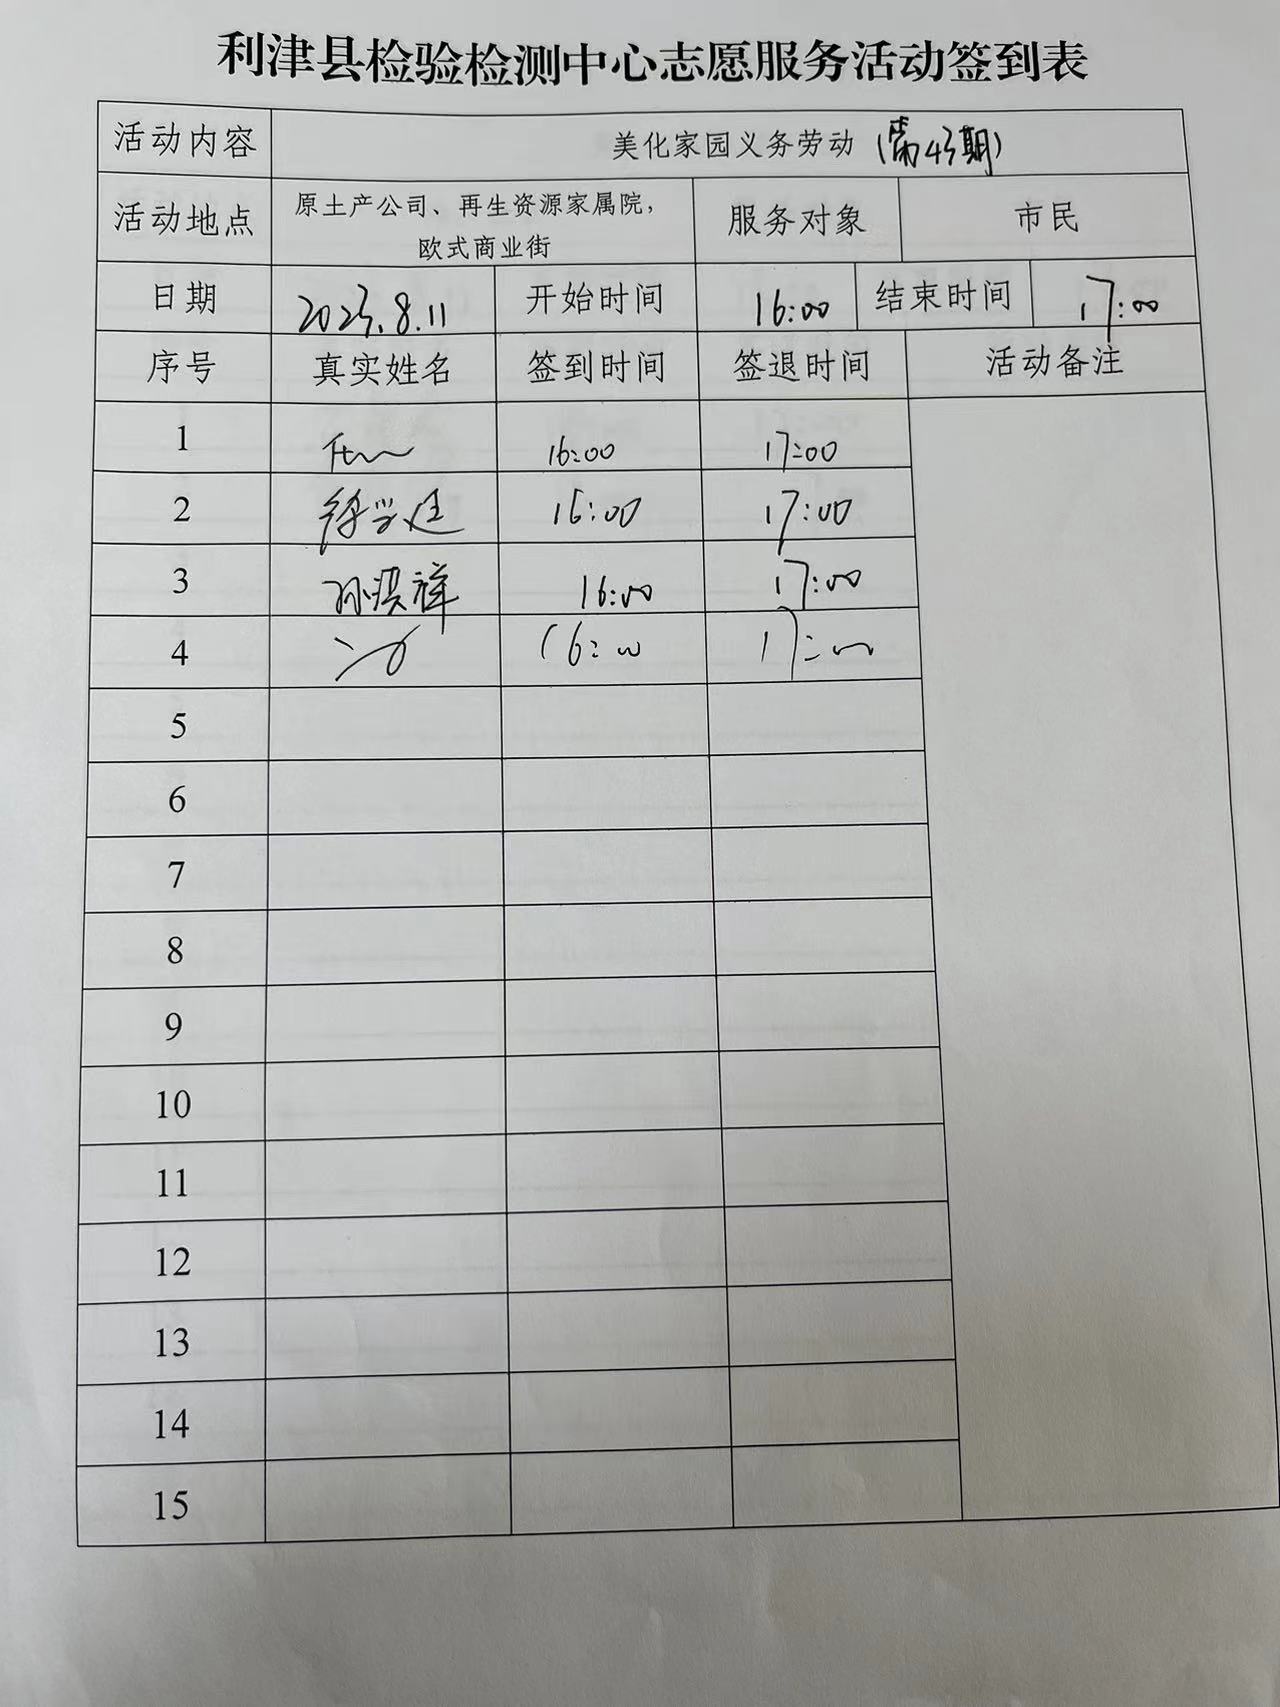 利津县检验检测中心志愿服务活动签到表
活动内容 美化家园义务劳动（第43期）
活动地点 原土产公司、再生资源家属院，
欧式商业街 服务对象 市民
日期 2023.8.11 开始时间 16:00 结束时间 17:00
序号 真实姓名 签到时间 签退时间 活动备注
1 16:00 17:00
2 16:00 17:00
3 16:00 17:00
4 16:00 17:00
5
6
7
8
9
10
11
12
13
14
15